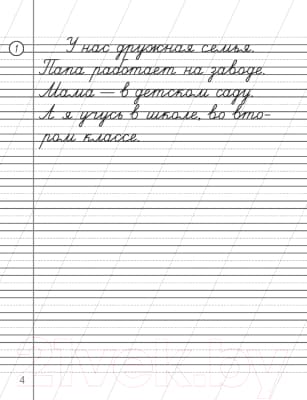 1
У нас дружная семья.
Папа работает на заводе.
Мама — в детском саду.
А я учусь в школе, во вто-
ром классе.
4
21vek.by